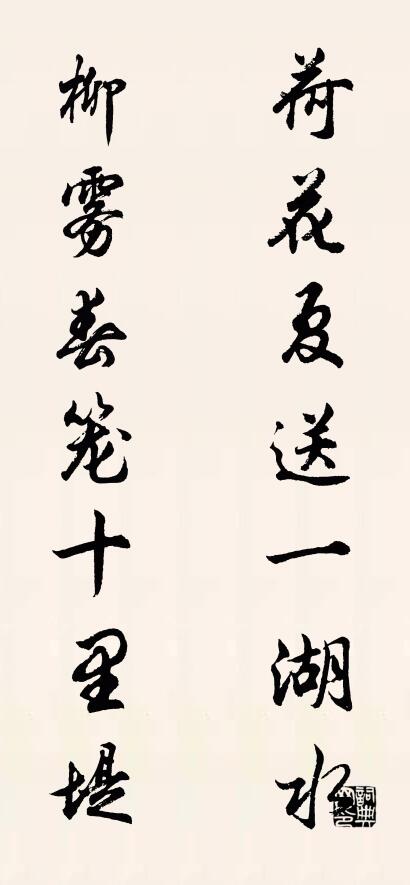 荷花夏送一湖水
柳雾春笼十里堤